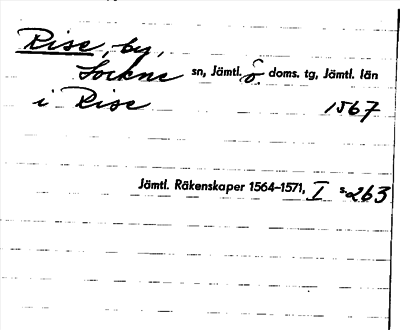 Rise, by,
Lockne sn, Jämtl. ö. doms. tg, Jämtl. län
i Rise 1567
Jämtl. Räkenskaper 1564–1571, I s. 263